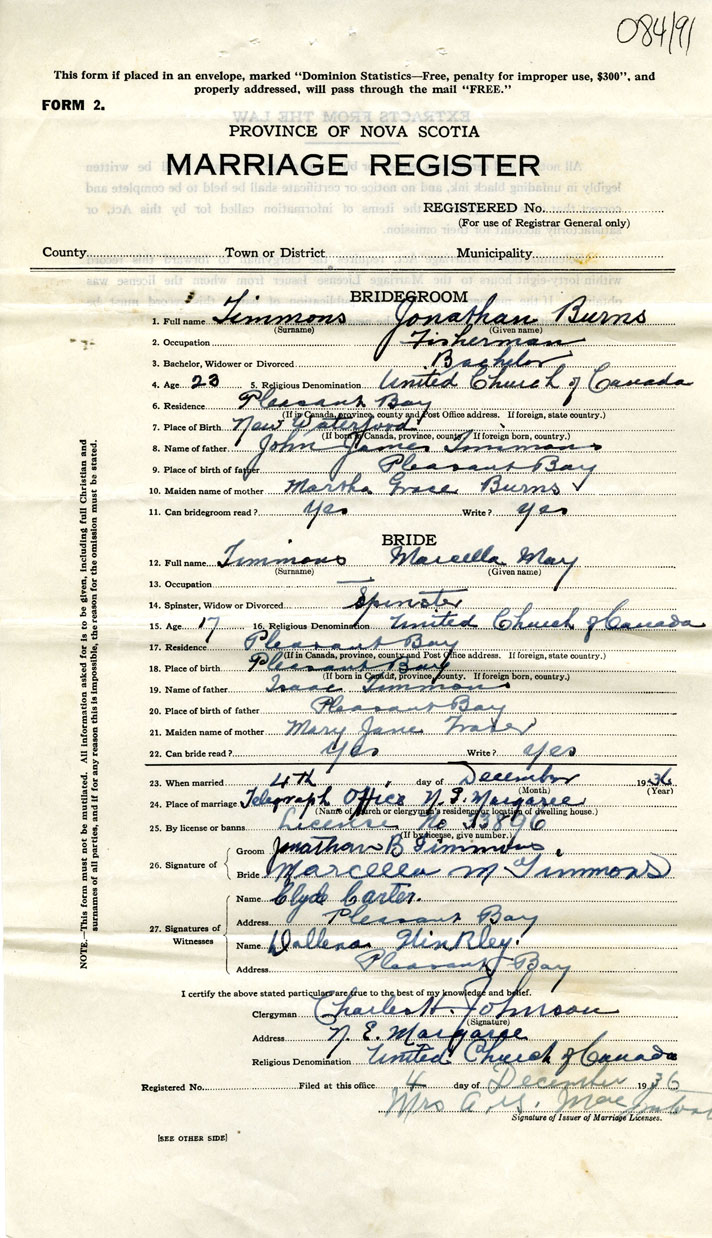 084/91
This form if placed in an envelope, marked "Dominion Statistics—Free, penalty for improper use, $300", and
properly addressed, will pass through the mail "FREE."
FORM 2.
PROVINCE OF NOVA SCOTIA
MARRIAGE REGISTER
REGISTERED No.
(For use of Registrar General only)
County Town or District Municipality
BRIDEGROOM
1. Full name Timmons Jonathan Burns
(Surname) (Given name)
2. Occupation Fisherman
3. Bachelor, Widower or Divorced Bachelor
4. Age 23 5. Religious Denomination United Church of Canada
6. Residence Pleasant Bay
(If in Canada, province, county and Post Office address. If foreign, state country.)
7. Place of Birth New Waterford
(If born in Canada, province, county. If foreign born, country.)
8. Name of father John James Timmons
9. Place of birth of father Pleasant Bay
10. Maiden name of mother Martha Grace Burns
11. Can bridegroom read? Yes Write? Yes
BRIDE
12. Full name Timmons Marcella May
(Surname) (Given name)
13. Occupation —
14. Spinster, Widow or Divorced Spinster
15. Age 17 16. Religious Denomination United Church of Canada
17. Residence Pleasant Bay
(If in Canada, province, county and Post Office address. If foreign, state country.)
18. Place of birth Pleasant Bay
(If born in Canada, province, county. If foreign born, country.)
19. Name of father Isaac Timmons
20. Place of birth of father Pleasant Bay
21. Maiden name of mother Mary Jane Fraser
22. Can bride read? Yes Write? Yes
23. When married 4th day of December 1936
(Month) (Year)
24. Place of marriage Telegraph Office N. E. Margaree
(Name of church or clergyman's residence or location of dwelling house.)
25. By license or banns License No 33896
(If by license, give number.)
26. Signature of Groom Jonathan B Timmons
Bride Marcella M Timmons
27. Signatures of Witnesses
Name Clyde Carter.
Address Pleasant Bay
Name Dallena Hinkley.
Address Pleasant Bay
I certify the above stated particulars are true to the best of my knowledge and belief.
Clergyman Charles H. Johnson
(Signature)
Address N. E. Margaree
Religious Denomination United Church of Canada
Registered No. Filed at this office 4 day of December 1936
Mrs A
Signature of Issuer of Marriage Licenses.
[SEE OTHER SIDE]
NOTE.—This form must not be mutilated. All information asked for is to be given, including full Christian and
surnames of all parties, and if for any reason this is impossible, the reason for the omission must be stated.